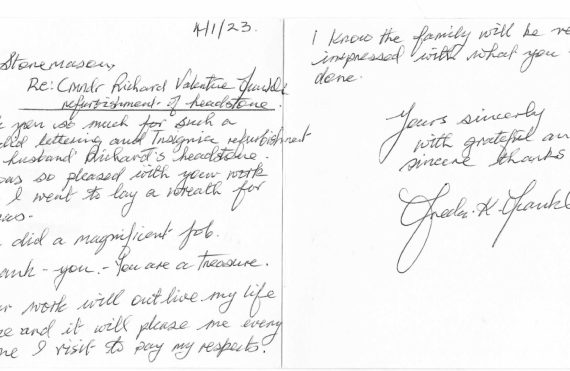 4/1/23.
Stonemason,
Re: Cmndr Richard Valentine
refurbishment of headstone.
you so much for such a
lettering and Insignia refurbishment
husband Richard's headstone.
was so pleased with your work
I went to lay a wreath for
did a magnificent job.
ank - you. - You are a treasure.
work will outlive my life
and it will please me every
I visit to pay my respects.
I know the family will be
impressed with what you
done.
Yours sincerely
with grateful an
sincere thanks